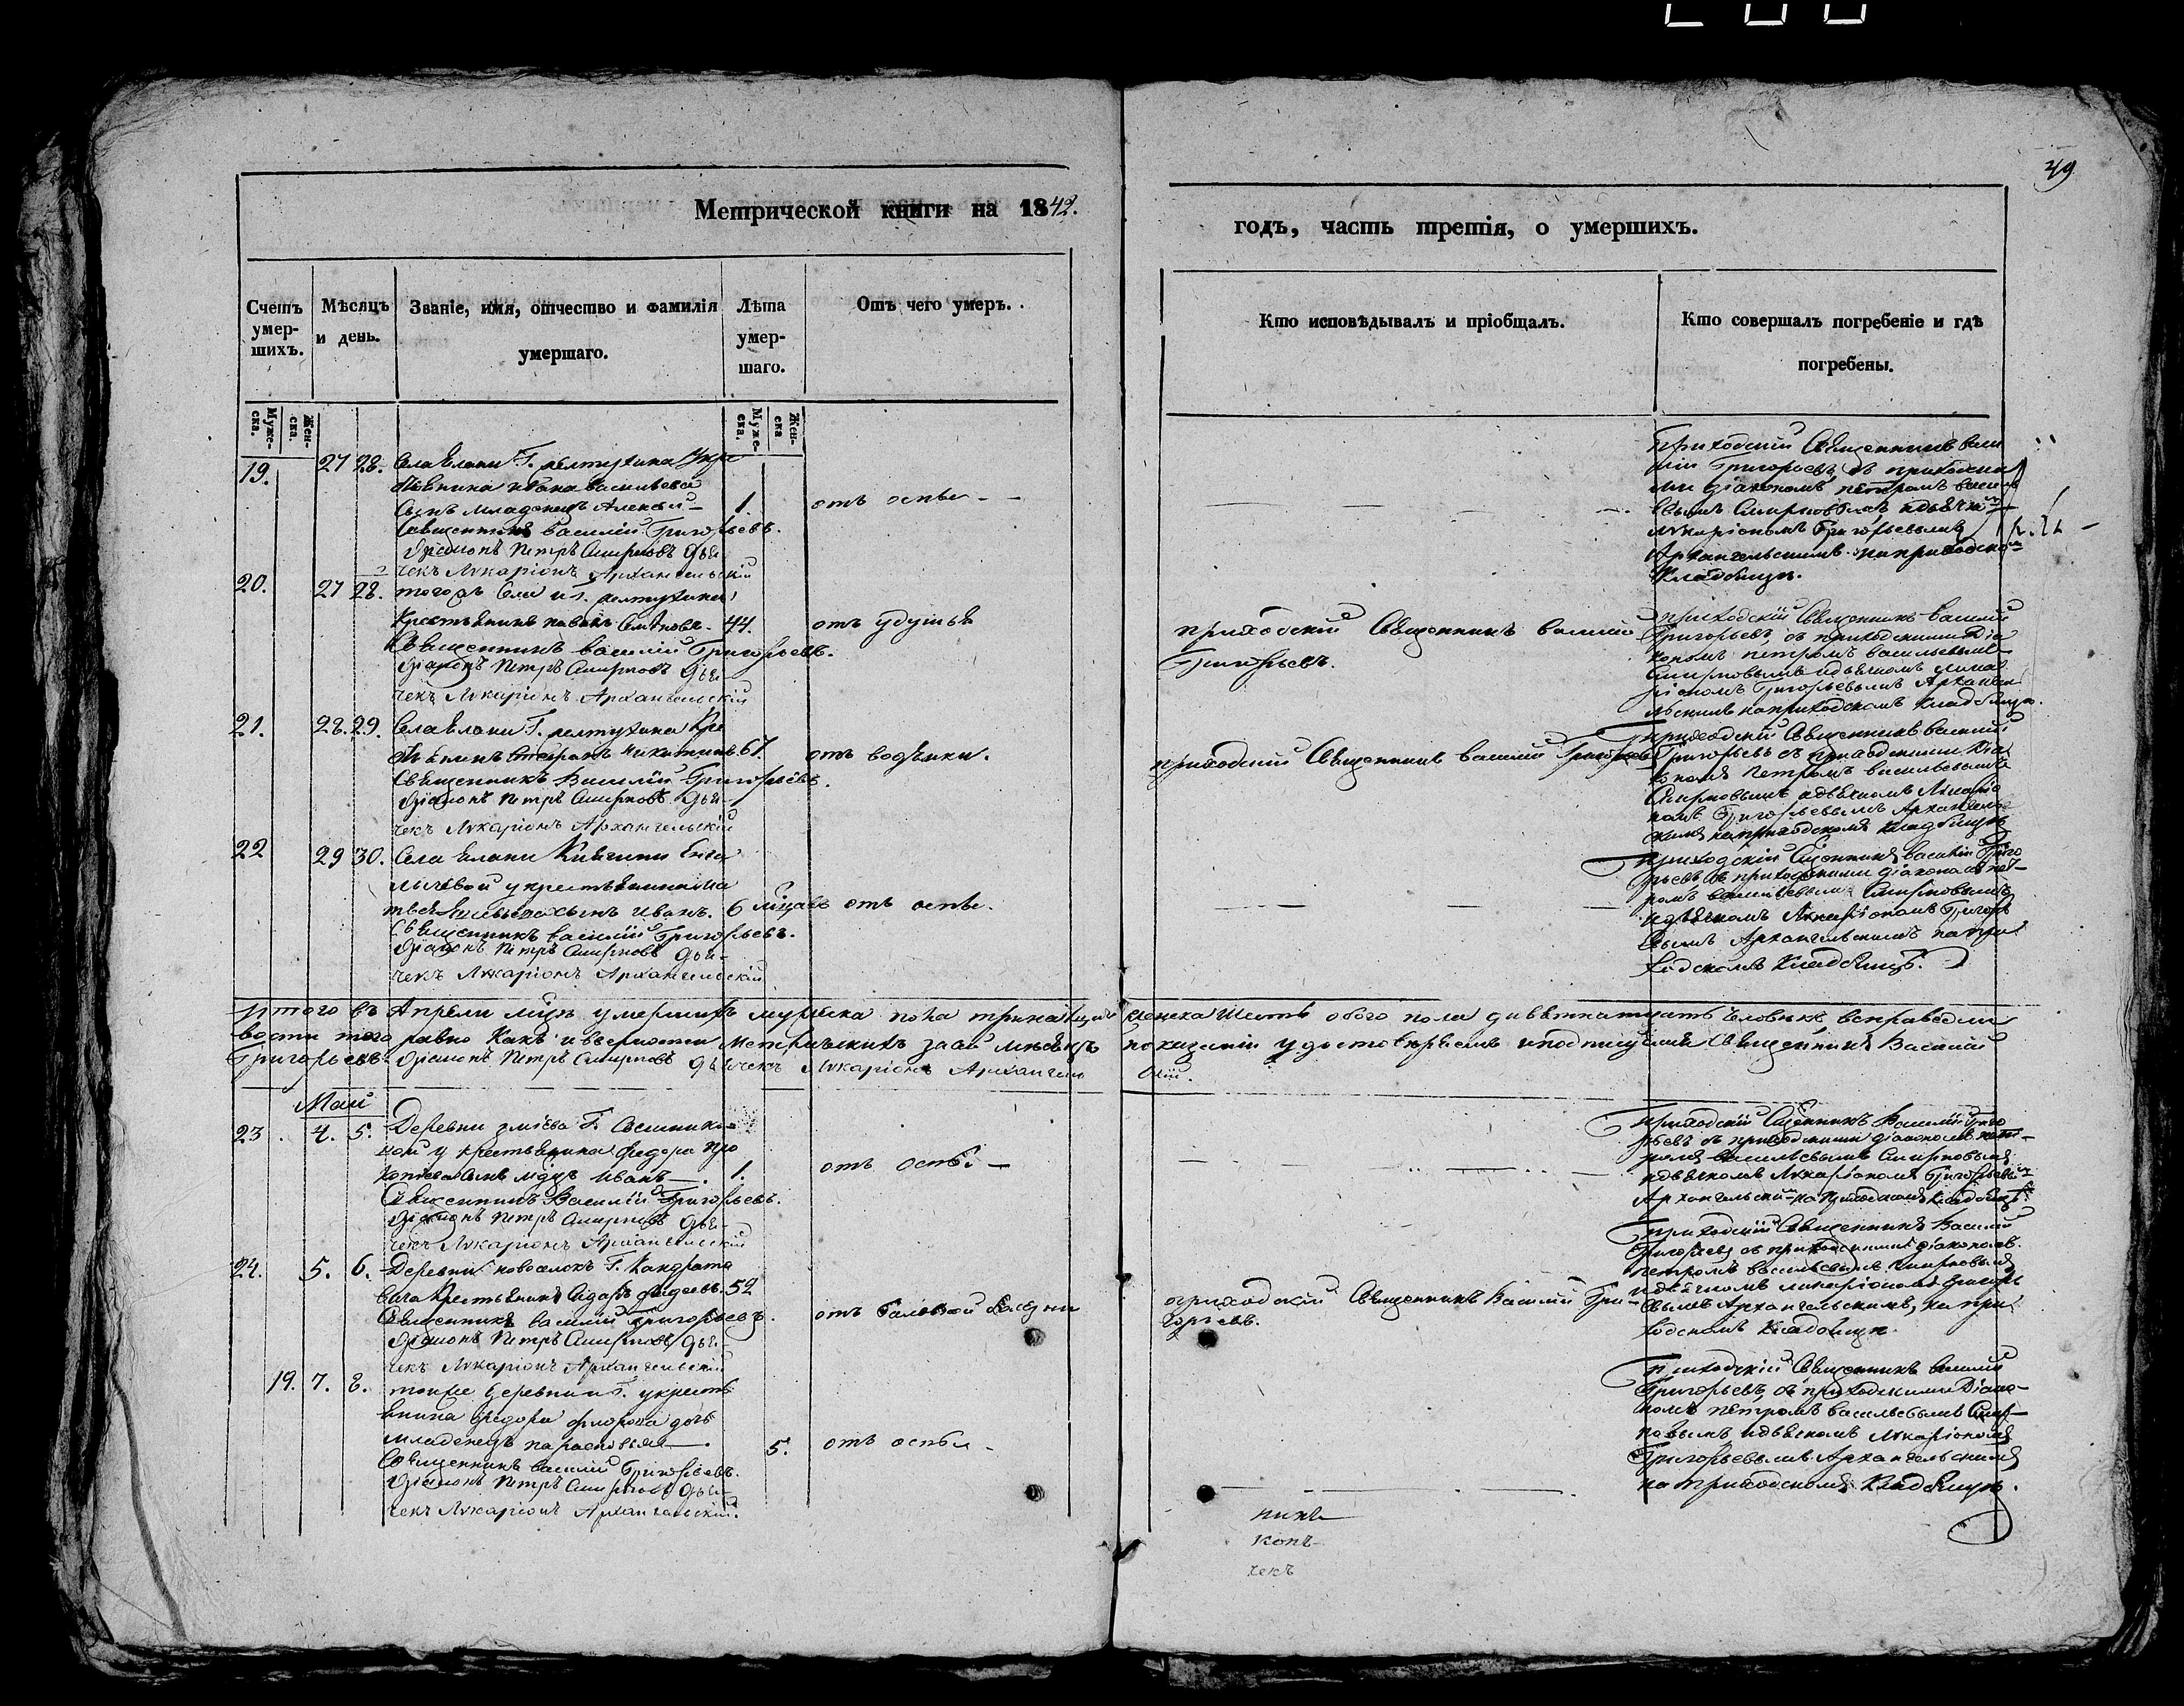 49
Метрической книги на 1842.
годъ, часть третія, о умершихъ.
Счетъ умер-шихъ.
Мѣсяцъ и день.
Званіе, имя, отчество и фамилія умершаго.
Лѣта умер-шаго.
Отъ чего умеръ.
Кто исповѣдывалъ и пріобщалъ.
Кто совершалъ погребеніе и гдѣ погребены.
Муже-ска.
Жен-ска.
Муже-ска.
Жен-ска
19. 27 28. Села Елани Г. желтухина
Ивана Васильева
Сынъ младенецъ Алексѣй 1. отъ оспы
Священникъ Василій Григорьевъ.
Діаконъ Петръ Смирновъ Дья-
чекъ Лукаріонъ Архангельскій
Приходскій Священникъ Васи
лій Григорьевъ съ приходски
ми діакономъ Петромъ Василь
евымъ Смирновымъ и дьячко
Лукаріономъ Григорьевымъ
Архангельскимъ на приходско
Кладбищѣ.
20. 27 28. тогожъ Села и г. желтухина
Крестьянинъ 44. отъ удушья
Священникъ Василій Григорьевъ.
Діаконъ Петръ Смирновъ Дья-
чекъ Лукаріонъ Архангельскій
приходскій Священникъ Василій
Григорьевъ.
приходскій Священникъ Василій
Григорьевъ съ приходскими Діа
кономъ Петромъ Васильевымъ
Смирновымъ и дьячкомъ Лука
ріономъ Григорьевымъ Архангел
ьскимъ на приходскомъ Кладбищѣ.
21. 28. 29. Села Елани Г. желтухина Кре
стьянинъ Никитинъ 67. отъ водянки.
Священникъ Василій Григорьевъ.
Діаконъ Петръ Смирновъ Дья-
чекъ Лукаріонъ Архангельскій
приходскій Священникъ Василій Григорьевъ
Приходскій Священникъ Василій
Григорьевъ съ приходскими Діа
кономъ Петромъ Васильевымъ
Смирновымъ и дьячкомъ Лукаріо
номъ Григорьевымъ Архангель
скимъ на приходскомъ кладбищѣ
22 29 30. Села Елани Княгини Енга
лычевой у крестьянина Ма
сынъ Иванъ. 6 отъ оспы.
Священникъ Василій Григорьевъ.
Діаконъ Петръ Смирновъ Дья-
чекъ Лукаріонъ Архангельскій
приходскій Священникъ Василій Григо
рьевъ съ приходскими діакономъ Пет-
ромъ Васильевымъ Смирновымъ
и дьячкомъ Лукаріономъ Григорь
евымъ Архангельскимъ на при
ходскомъ Кладбищѣ.
Итого въ Апрелѣ умершихъ мужеска пола тринадцать женска Шесть обоего пола девятнатцать человѣкъ, въ справедли
вости того равно какъ и въ вѣрности показаніи удостовѣряемъ и подписуемъ Священникъ Василій
Григорьевъ Діаконъ Петръ Смирновъ Дьячекъ Лукаріонъ Архангель скій.
Май
23. 4. 5. Деревни Г.
ной у крестьянина Федора Про
копьева сынъ Иванъ 1. отъ оспы
Священникъ Василій Григорьевъ.
Діаконъ Петръ Смирновъ Дья-
чекъ Лукаріонъ Архангельскій
приходскій Священникъ Василій Григо
рьевъ съ приходскими діакономъ Пет-
ромъ Васильевымъ Смирновымъ
и дьячкомъ Лукаріономъ Григорьевы
Архангельски на приходскомъ кладбищѣ
24. 5. 6. Деревни новоселокъ Г. Кандрато
вича Крестьянинъ Сидоръ Фадеевъ. 52
Священникъ Василій Григорьевъ. отъ Головной Болезни
Діаконъ Петръ Смирновъ Дья-
чекъ Лукаріонъ Архангельскій
приходскій Священникъ Василій Гри-
горьевъ.
приходскій Священникъ Василій
Григорьевъ съ приходскими діакономъ
Петромъ Васильевымъ Смирновымъ
и дьячкомъ Лукаріономъ Григорь
евымъ Архангельскимъ, на при
ходскомъ Кладбищѣ.
19. 7. 8. тойже Деревни и Г. у крестья
янина Федора дочь
Младенецъ Парасковья 5. отъ оспы
Священникъ Василій Григорьевъ.
Діаконъ Петръ Смирновъ Дья-
чекъ Лукаріонъ Архангельскій.
приходскій Священникъ Василій
Григорьевъ, съ приходскими Діако-
номъ Петромъ Васильевымъ Смир-
новымъ и дьячкомъ Лукаріономъ
Григорьевымъ Архангельскимъ
на приходскомъ Кладбищѣ.
никъ
конъ
чекъ